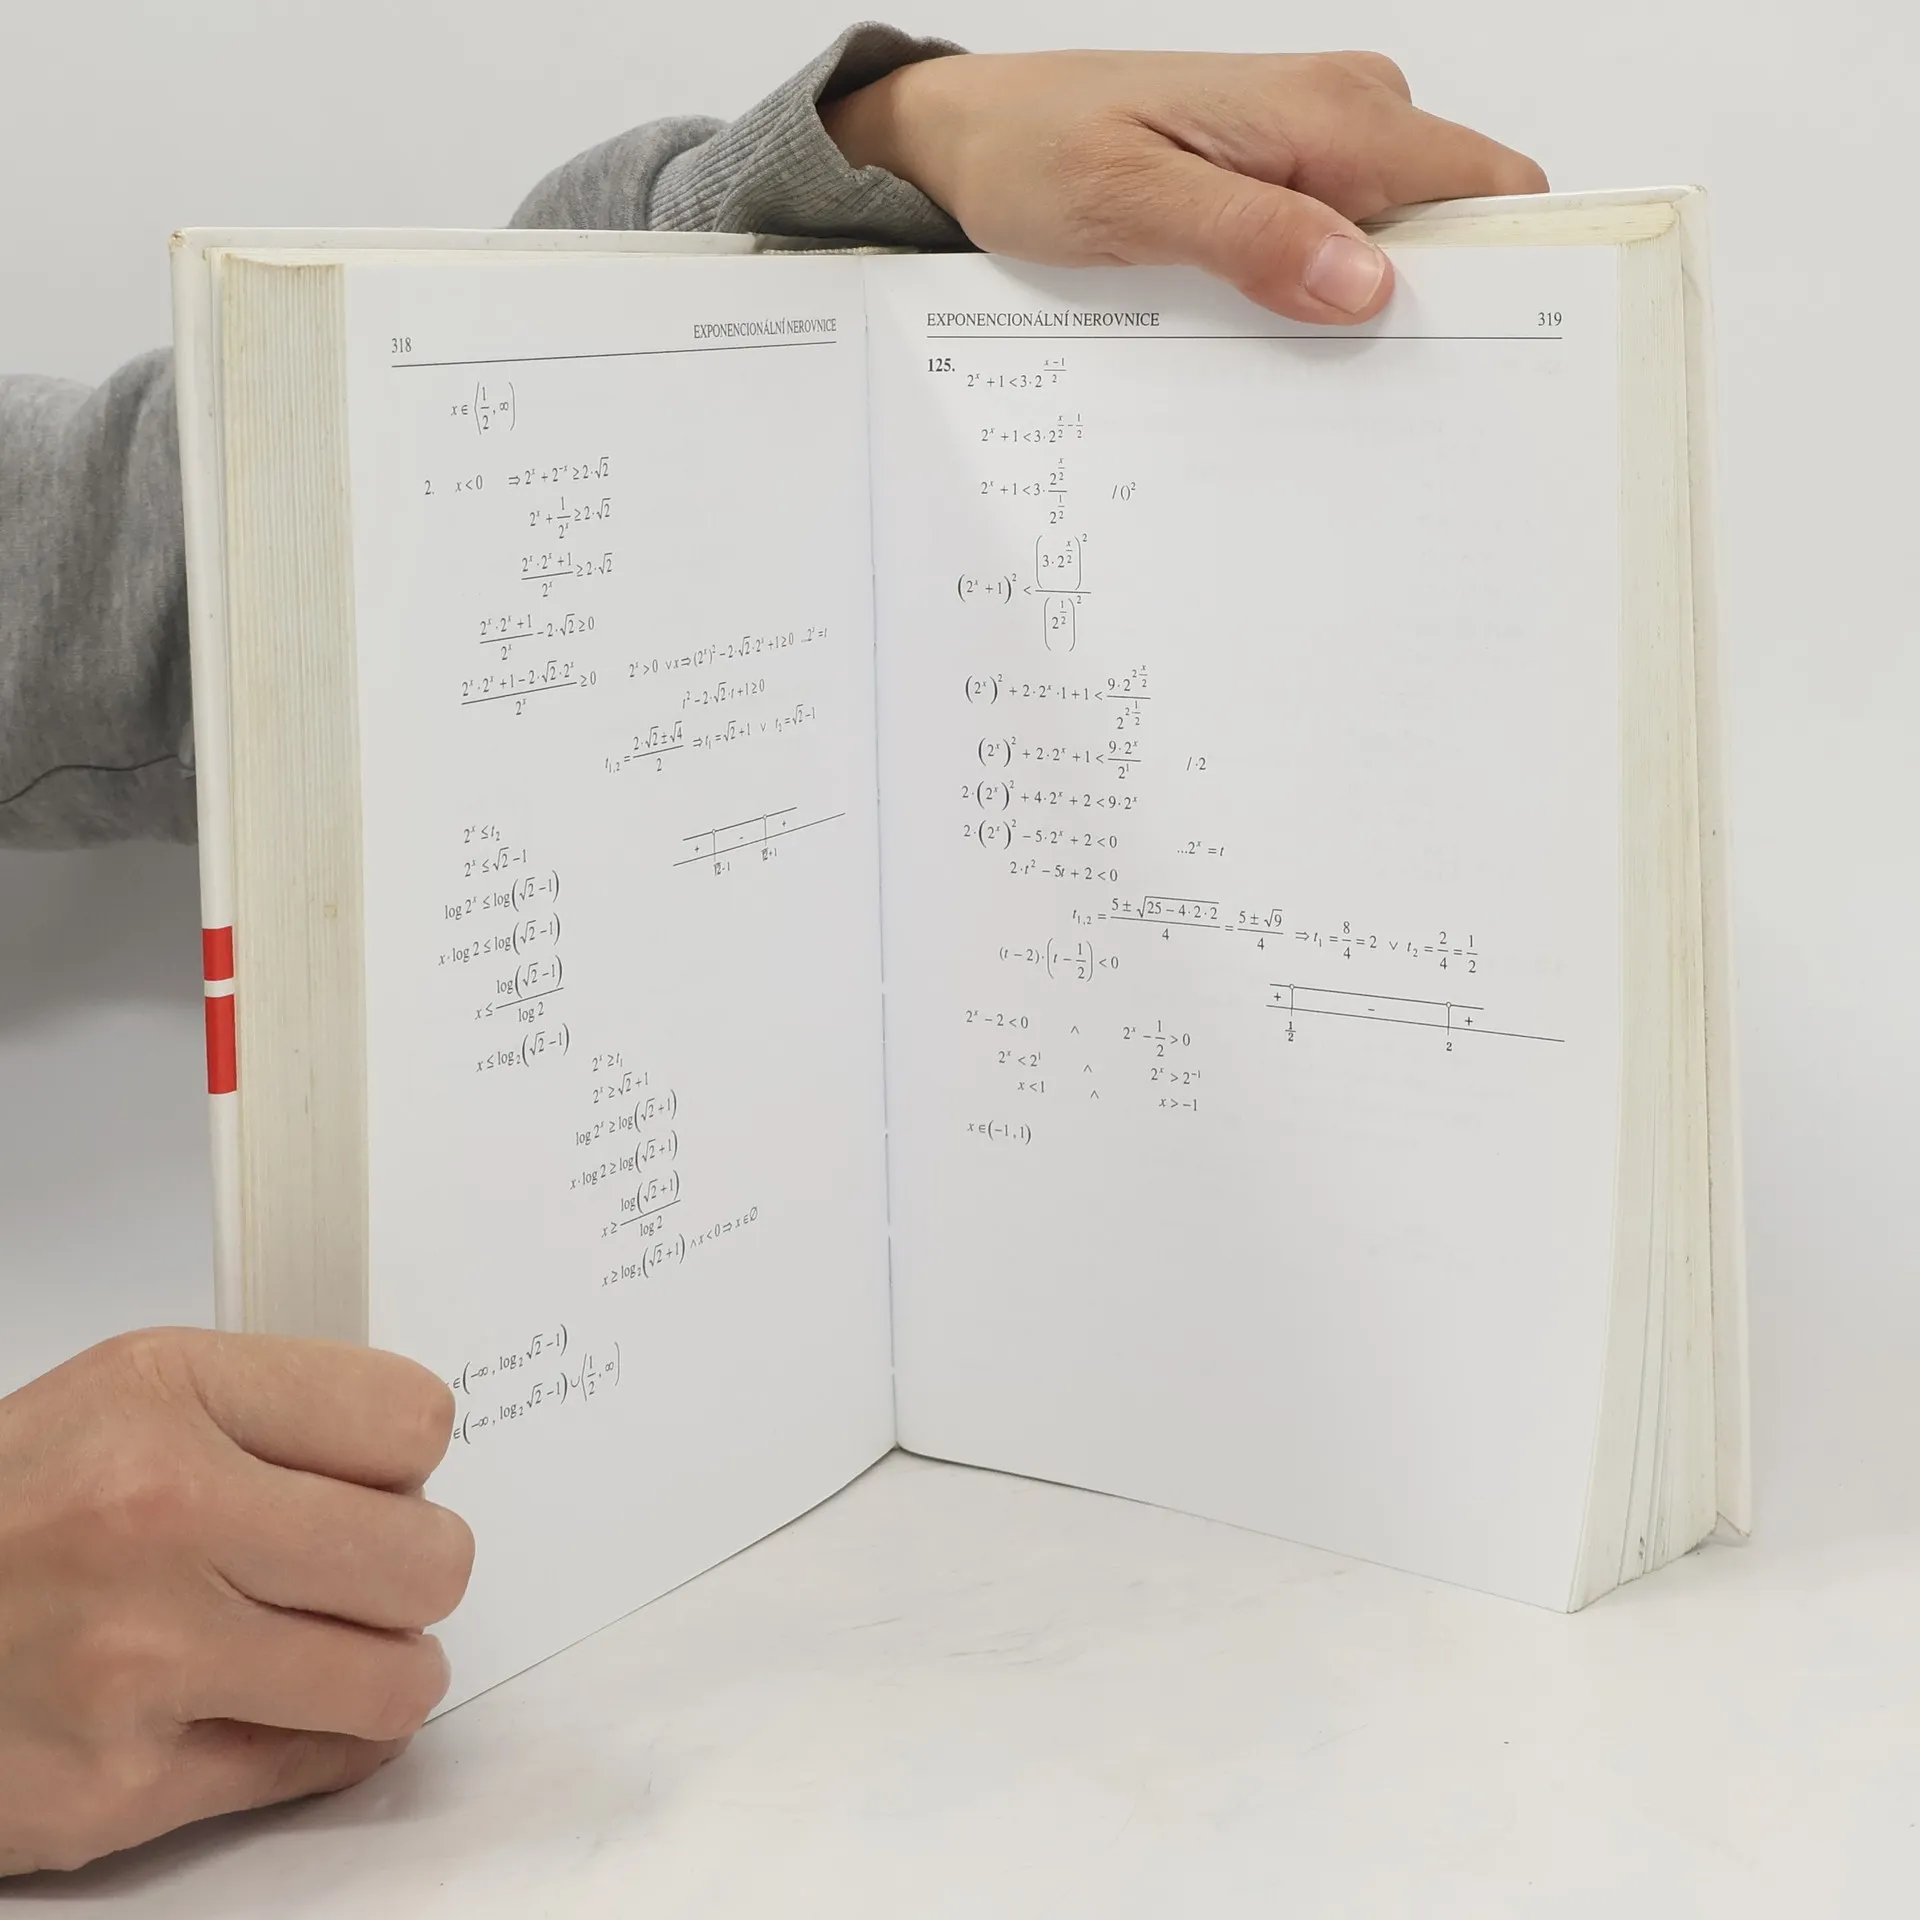 318 EXPONENCIONÁLNÍ NEROVNICE
x ∈ ⟨1/2, ∞)
2. x < 0 ⇒ 2^x + 2^-x ≥ 2·√2
2^x + 1/2^x ≥ 2·√2
(2^x·2^x + 1)/2^x ≥ 2·√2
(2^x·2^x + 1)/2^x − 2·√2 ≥ 0
(2^x·2^x + 1 − 2·√2·2^x)/2^x ≥ 0 2^x > 0 ∨x ⇒ (2^x)^2 − 2·√2·2^x + 1 ≥ 0 ...2^x = t
t^2 − 2·√2·t + 1 ≥ 0
t_1,2 = (2·√2 ± √4)/2 ⇒ t_1 = √2 + 1 ∨ t_2 = √2 − 1
+ − +
√2−1 √2+1
2^x ≤ t_2
2^x ≤ √2 − 1
log 2^x ≤ log(√2 − 1)
x·log 2 ≤ log(√2 − 1)
x ≤ log(√2 − 1)/log 2
x ≤ log_2(√2 − 1)
2^x ≥ t_1
2^x ≥ √2 + 1
log 2^x ≥ log(√2 + 1)
x·log 2 ≥ log(√2 + 1)
x ≥ log(√2 + 1)/log 2
x ≥ log_2(√2 + 1) ∧ x < 0 ⇒ x ∈ ∅
∈ (−∞, log_2 √2 − 1)
∈ (−∞, log_2 √2 − 1) ∪ ⟨1/2, ∞)
EXPONENCIONÁLNÍ NEROVNICE 319
125. 2^x + 1 < 3·2^((x−1)/2)
2^x + 1 < 3·2^(x/2 − 1/2)
2^x + 1 < 3·2^(x/2)/2^(1/2) /()^2
(2^x + 1)^2 < (3·2^(x/2))^2/(2^(1/2))^2
(2^x)^2 + 2·2^x·1 + 1 < 9·2^(2·x/2)/2^(2·1/2)
(2^x)^2 + 2·2^x + 1 < 9·2^x/2^1 /·2
2·(2^x)^2 + 4·2^x + 2 < 9·2^x
2·(2^x)^2 − 5·2^x + 2 < 0 ...2^x = t
2·t^2 − 5t + 2 < 0
t_1,2 = (5 ± √(25 − 4·2·2))/4 = (5 ± √9)/4 ⇒ t_1 = 8/4 = 2 ∨ t_2 = 2/4 = 1/2
(t − 2)·(t − 1/2) < 0
+ − +
1/2 2
2^x − 2 < 0 ∧ 2^x − 1/2 > 0
2^x < 2^1 ∧ 2^x > 2^−1
x < 1 ∧ x > −1
x ∈ (−1, 1)